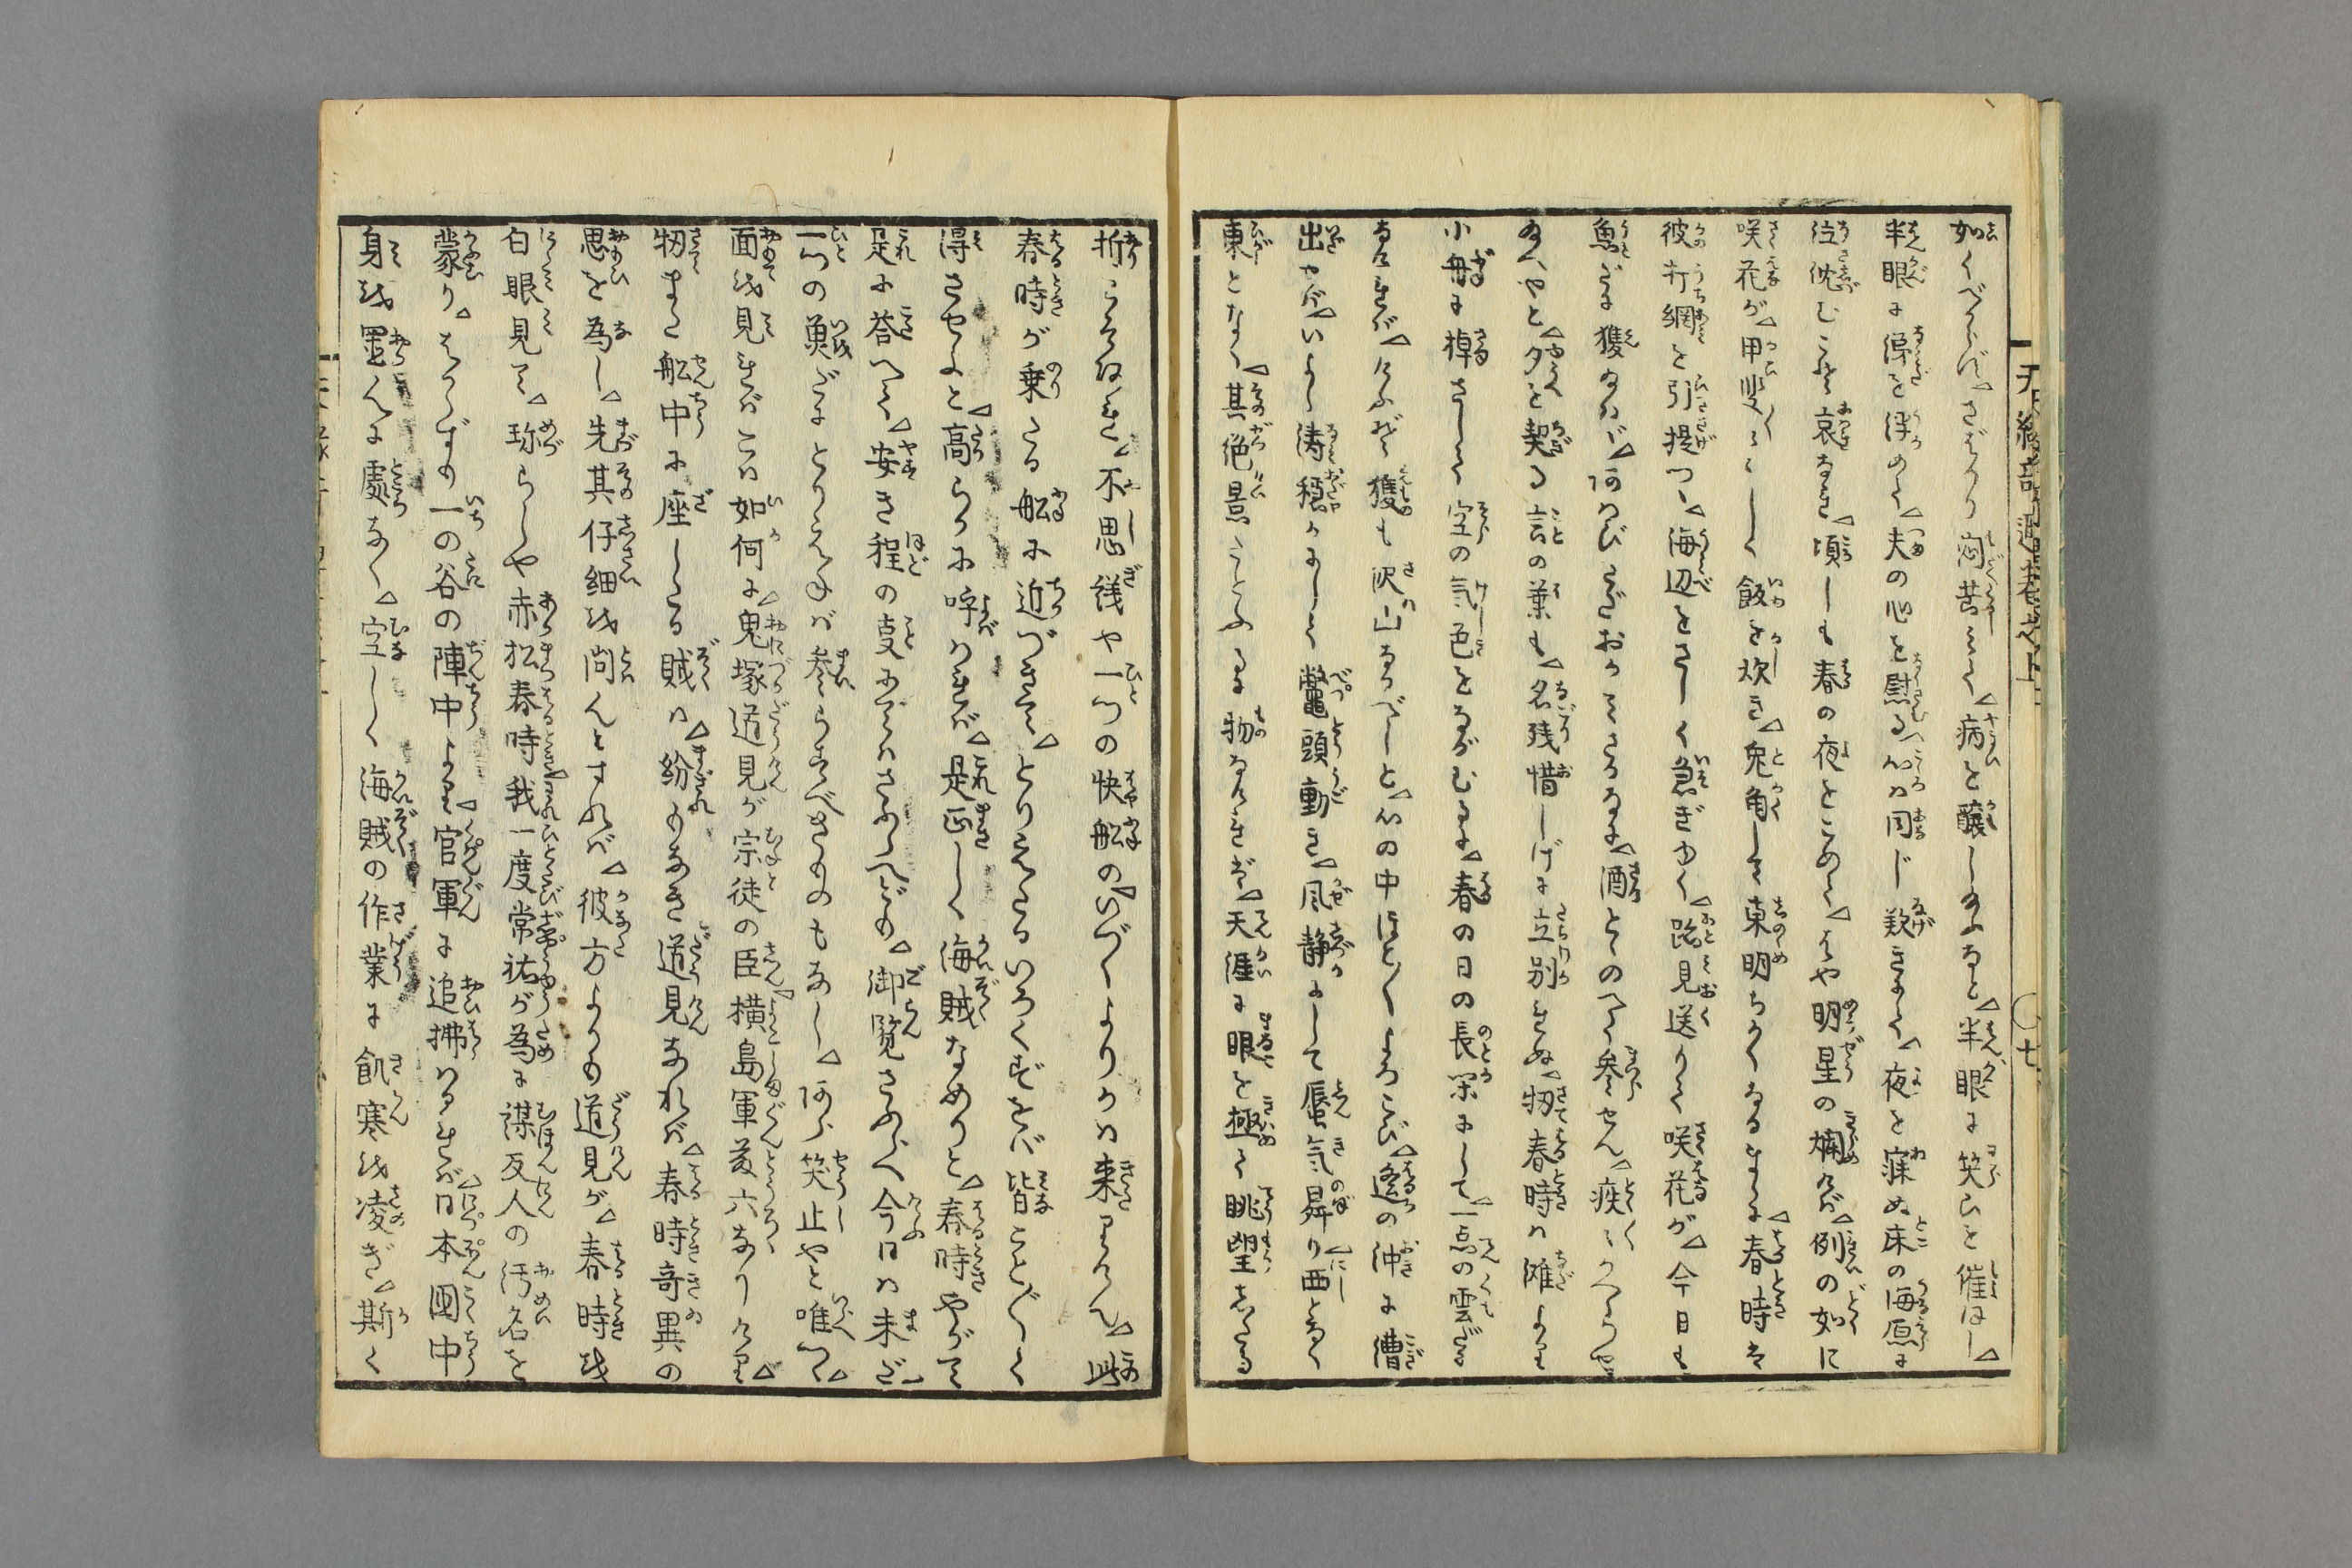 如くべからず△さばかり悶苦みて△病と醸し給ふなと△半眼に笑ひを催ほし△
半眼に涕を浮めて△夫の心を慰る△心は同じ歎きまて△夜を寐ぬ床の海原に
泣沈むこそ哀なれ△頃しも春の夜をこめて△はや明星の爛けば△例の如に
咲花が△甲斐〳〵しく飯を炊き△兎角して東明ちかくなるまゝに△春時は
彼打網を引提つゝ△海辺をさして急ぎゆく△跡見送りて咲花が△今日も
魚だに獲給はゞ△何はびさびおかずさるなよ△酒とゝのへて参らせん△疾〳〵かへらせ
給へやと△夕を契る言の葉も△名残惜しげに立別れぬ△扨春時は灘より
小舟に棹さして空の気色をながむるに△春の日の長閑にして△一点の雲だに
なければ△けふぞ獲も沢山なるべしと△心の中ほと〳〵よろこび△遙の沖に漕
出せば△いよ〳〵濤穏かにして鼈頭動き△風静にして蜃気昇り△西となく
東となく△其絶景うとふるに物なければ△天涯に眼を極て眺望したる
折こそあれ△不思議や一つの快船の△いづくよりかは来りけん△此
春時が乗たる船に近づきて△とりえたるいろくずをば皆こと〴〵く
得させよと△高らかに呼はれば△是正しく海賊なめりと△春時やがて
是に答へて△安き程の事にてはさふらへども△御覧さふらへ今日は未だ
一つの魚だにとりえねば△参らすべきものもなし△何ゝ笑止やと唯つゝ△
面を見ればこは如何に△鬼塚道見が宗徒の臣△横島軍藤六なりけり△
扨また船中に座したる賊は△紛ものなき道見なれば△春時奇異の
思を為し△先其仔細を問んとすれば△彼方よりも道見が△春時を
白眼見て△珍らしや赤松春時△我一度常祐が為に謀反人の汚名を
蒙り△はからずも一の谷の陣中より△官軍に追拂はるれば△日本國中
身を置んに處なく△空しく海賊の作業に飢寒を凌ぎ△斯く